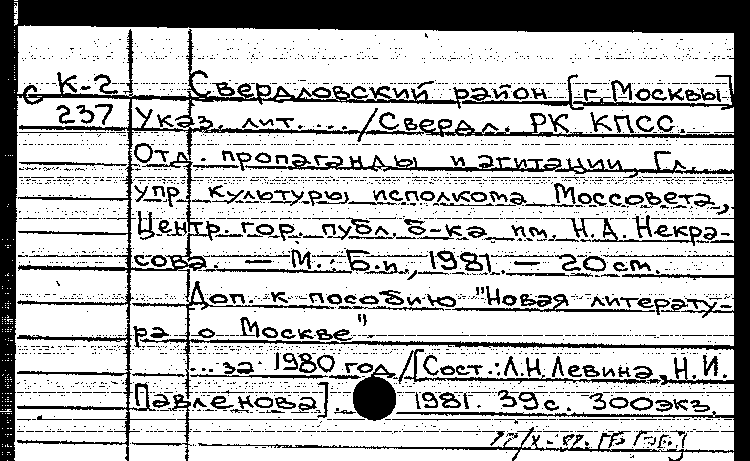 с К-2 Свердловский район [г. Москвы]
237 Указ. лит. .... /Свердл. РК КПСС.
Отд. пропаганды и агитации, Гл.
упр. культуры исполкома Моссовета,
Центр. гор. публ. б-ка им. Н.А. Некра-
сова. — М.: Б.и., 1981. — 20 см.
Доп. к пособию "Новая литерату-
ра о Москве".
... за 1980 год /[Сост.: Л.Н. Левина, Н.И.
Павленова]. 1981. 39 с. 300 экз.